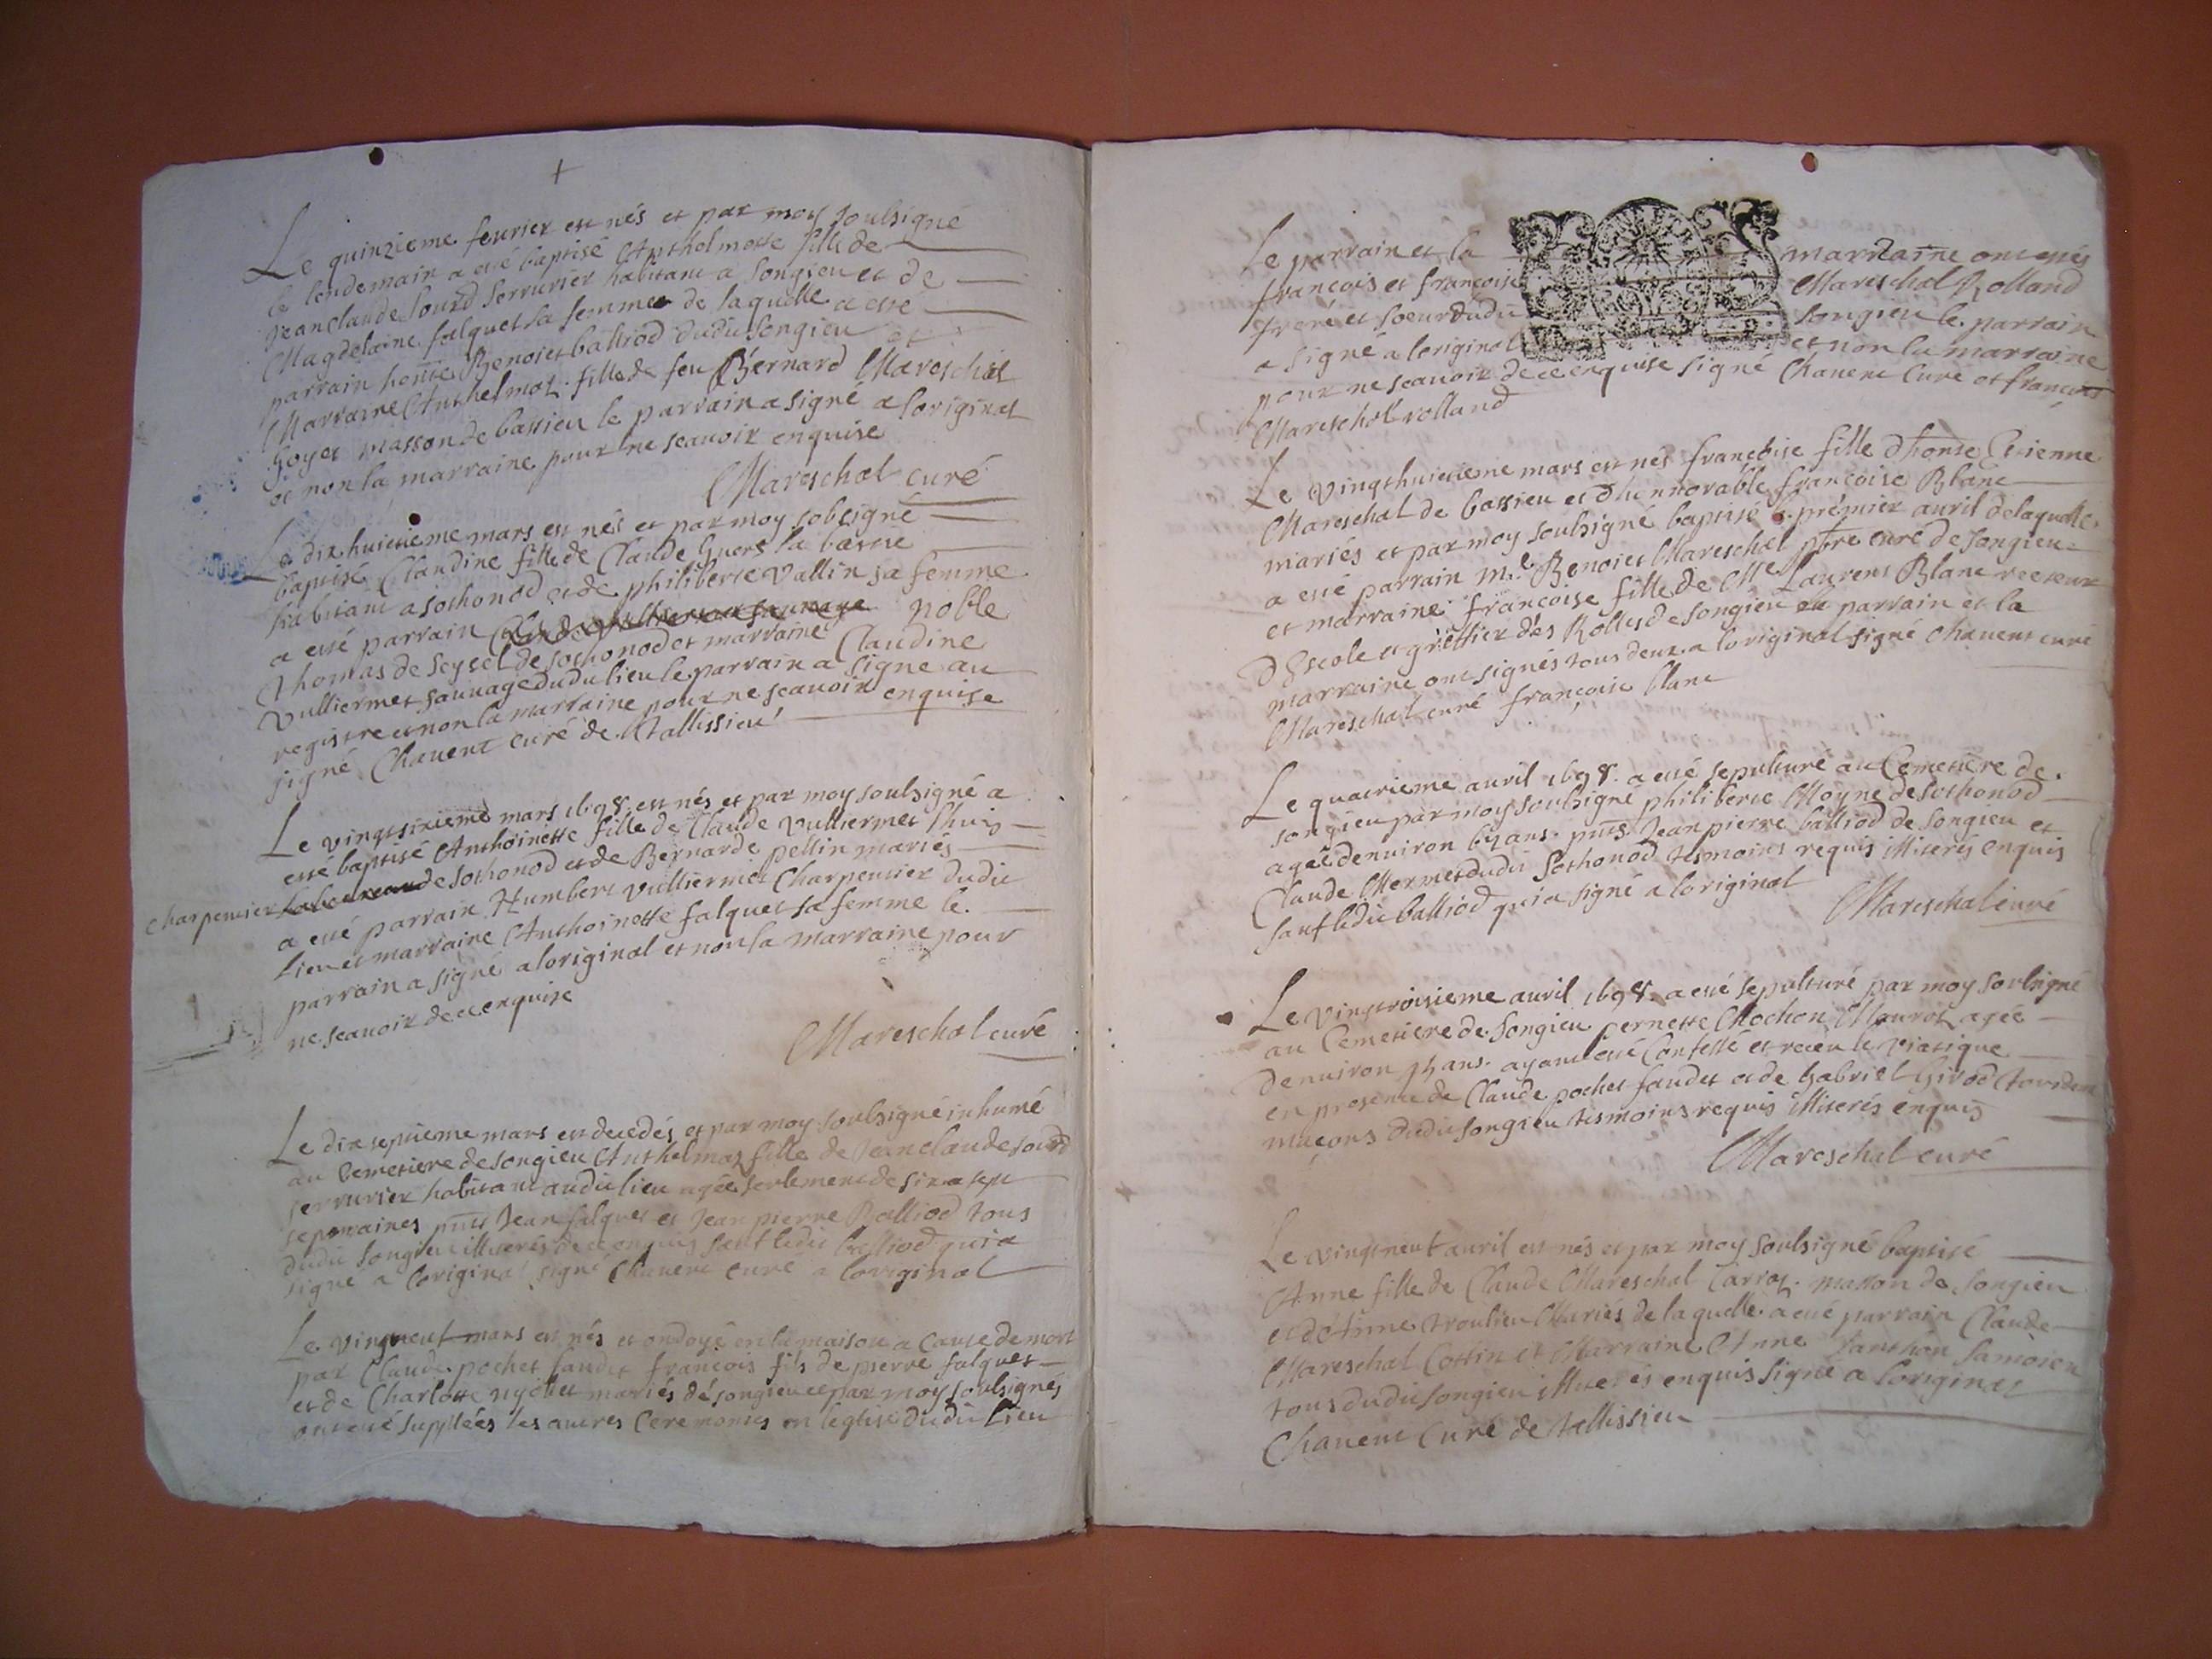 Le quinzieme feurier est nés et par moy soubsigné
le lendemain a esté baptisé Anthelmotte fille de
Jeanclaude Sourd Serrurier habitant a Songieu et de
Magdelaine falquet sa femme de laquelle a esté
parrain honte Benoict balliod dudit Songieu et
Marraine Anthelmoz fille de feu Bernard Mareschal
goyet masson de bassieu le parrain a signé a loriginal
et non la marraine pour ne scauoir enquise
Mareschal curé
Le dix huictieme mars est nés et par moy sobsigné
baptisé Claudine fille de Claude guers la basme
habitant a sothonod et de philiberte Vallin sa femme
a esté parrain noble
Thomas de Seysel de sothonod et marraine Claudine
Vulliermet sauuage dudit lieu le parrain a signe au
registre et non la marraine pour ne scauoir enquise
signé Chauent curé de Tallissieu
Le vingtsixieme mars 1698. est nés et par moy soubsigné a
esté baptisé Anthoinette fille de Claude Vulliermet
charpentier de sothonod et de Bernarde pellin mariés
a esté parrain Humbert Vulliermet Charpentier dudit
Lieu et marraine Anthoinette falquet sa femme le
parrain a signé a loriginal et non la marraine pour
ne scauoir de ce enquise
Mareschal curé
Le dix septieme mars est decedés et par moy soubsigné inhumé
au Cemetiere de songieu Anthelmoz fille de Jeanclaude sourd
serrurier habitant audit lieu agée seulement de six a sept
sepmaines pnts Jean falquet et Jean pierre Balliod tous
dudit songieu illiterés de ce enquis sauf ledit balliod qui a
signé a loriginal signé Chauent curé a loriginal
Le vingtneuf mars est nés et ondoyé en la maison a cause de mort
par Claude pochet faudet francois fils de pierre falquet
et de Charlotte nyollet mariés de songieu et par moy soubsignés
ont esté suppléés les autres Ceremonies en leglise dudit Lieu
Le parrain et la marraine ont estés
francois et francoise Mareschal Rolland
frere et soeur dudit Songieu le parrain
a signé a loriginal et non la marraine
pour ne scauoir de ce enquise signé Chauent Curé et francois
Mareschal rolland
Le vingthuictieme mars est nés francoise fille dhonte Etienne
Mareschal de bassieu et dhonnorable francoise Blanc
mariés et par moy soubsigné baptisé premier auril de laquelle
a esté parrain Mre Benoict Mareschal pbre curé de Songieu
et marraine francoise fille de Me Laurent Blanc recteur
DEscole et greffier des Rolles de songieu le parrain et la
marraine ont signés tous deux a loriginal signé chauent curé
Mareschal curé françoise blanc
Le quatrieme auril 1698. a esté sepulturé au Cemetiere de
songieu par moy soubsigné philiberte Moyne de sothonod
agée denuiron ans. pnts Jean pierre balliod de Songieu et
Claude Mermet dudit Sothonod tesmoins requis illiterés enquis
sauf ledit balliod qui a signé a loriginal
Mareschal curé
Le vingtroisieme auril 1698. a esté sepulturé par moy soubsigné
au Cemetiere de Songieu pernette Mochon agée
denuiron ans. ayant esté Confessé et receu le viatique
en presence de Claude pochet faudet et de gabriel girod
maçons dudit songieu tesmoins requis illiterés enquis
Mareschal curé
Le vingtneuf auril est nés et par moy soubsigné baptisé
Anne fille de Claude Mareschal Carroz masson de songieu
et dAnne troulieu Mariés de laquelle a esté parrain Claude
Mareschal Cottin et Marraine Anne
tous dudit songieu illiterés enquis signé a loriginal
Chauent Curé de tallissieu